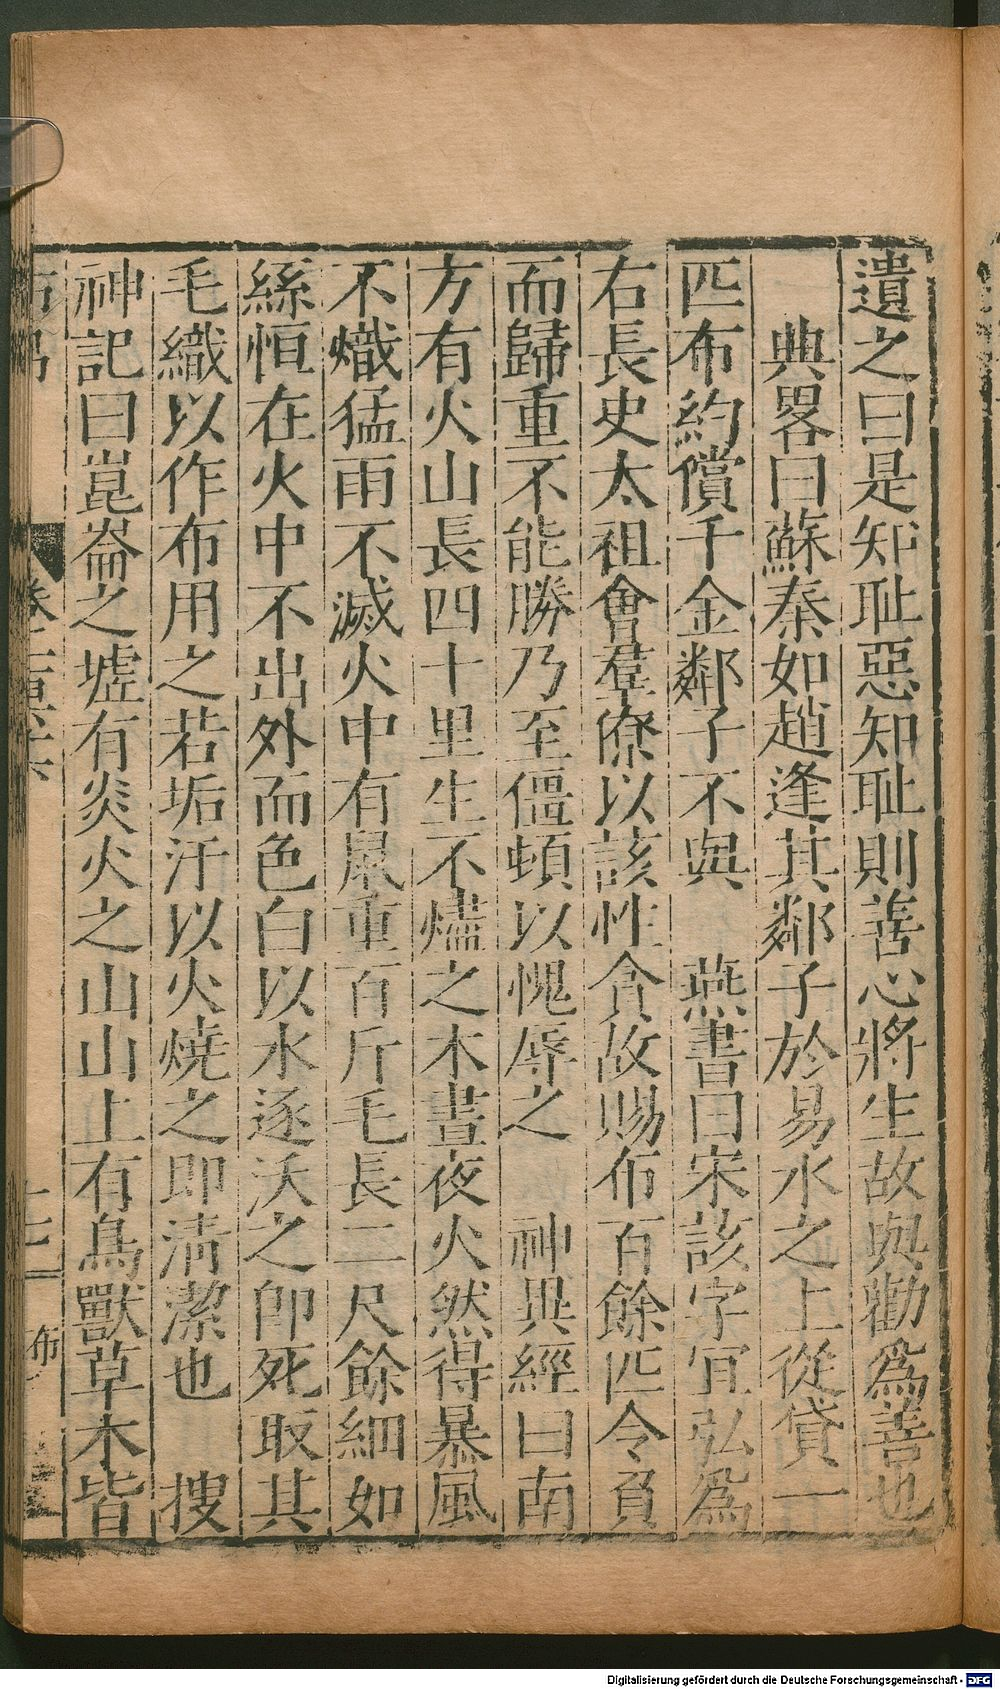 遺之曰是知耻惡知耻則善心將生故與勸為善也
典畧曰蘇秦如趙逢其鄰子於易水之上從貸一
匹布約償千金鄰子不與　燕書曰宋該字宣弘為
右長史太祖會羣僚以該性貪故賜布百餘匹令負
而歸重不能勝乃至僵頓以愧辱之　神異經曰南
方有火山長四十里生不燼之木晝夜火然得暴風
不熾猛雨不滅火中有鼠重百斤毛長二尺餘細如
絲恒在火中不出外而色白以水逐沃之即死取其
毛織以作布用之若垢汙以火燒之即清潔也　搜
神記曰崑崙之墟有炎火之山山上有鳥獸草木皆
布
Digitalisierung gefördert durch die Deutsche Forschungsgemeinschaft - DFG